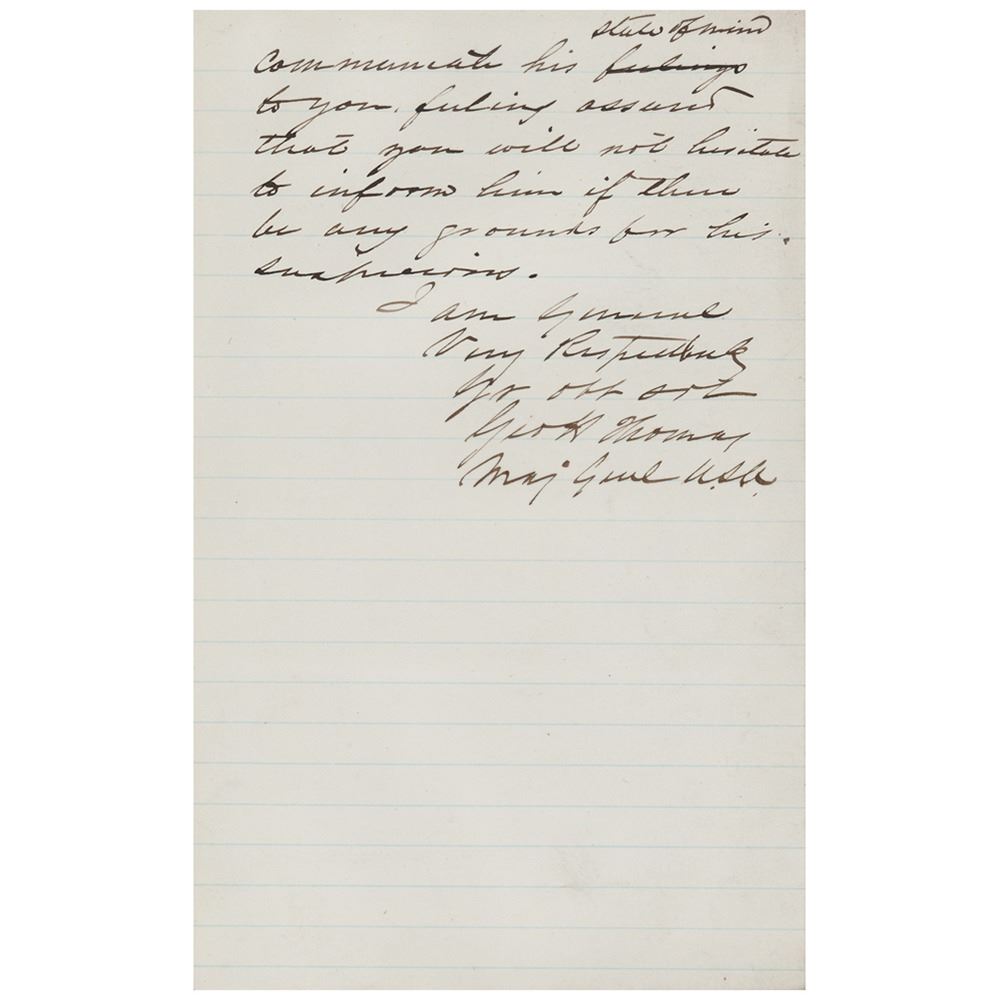 state of mind
communicate his feelings
to you, feeling assured
that you will not hesitate
to inform him if there
be any grounds for his
suspicions.
I am General
Very Respectfully
Yr obt svt
Geo H Thomas
Maj Genl U.S.A.